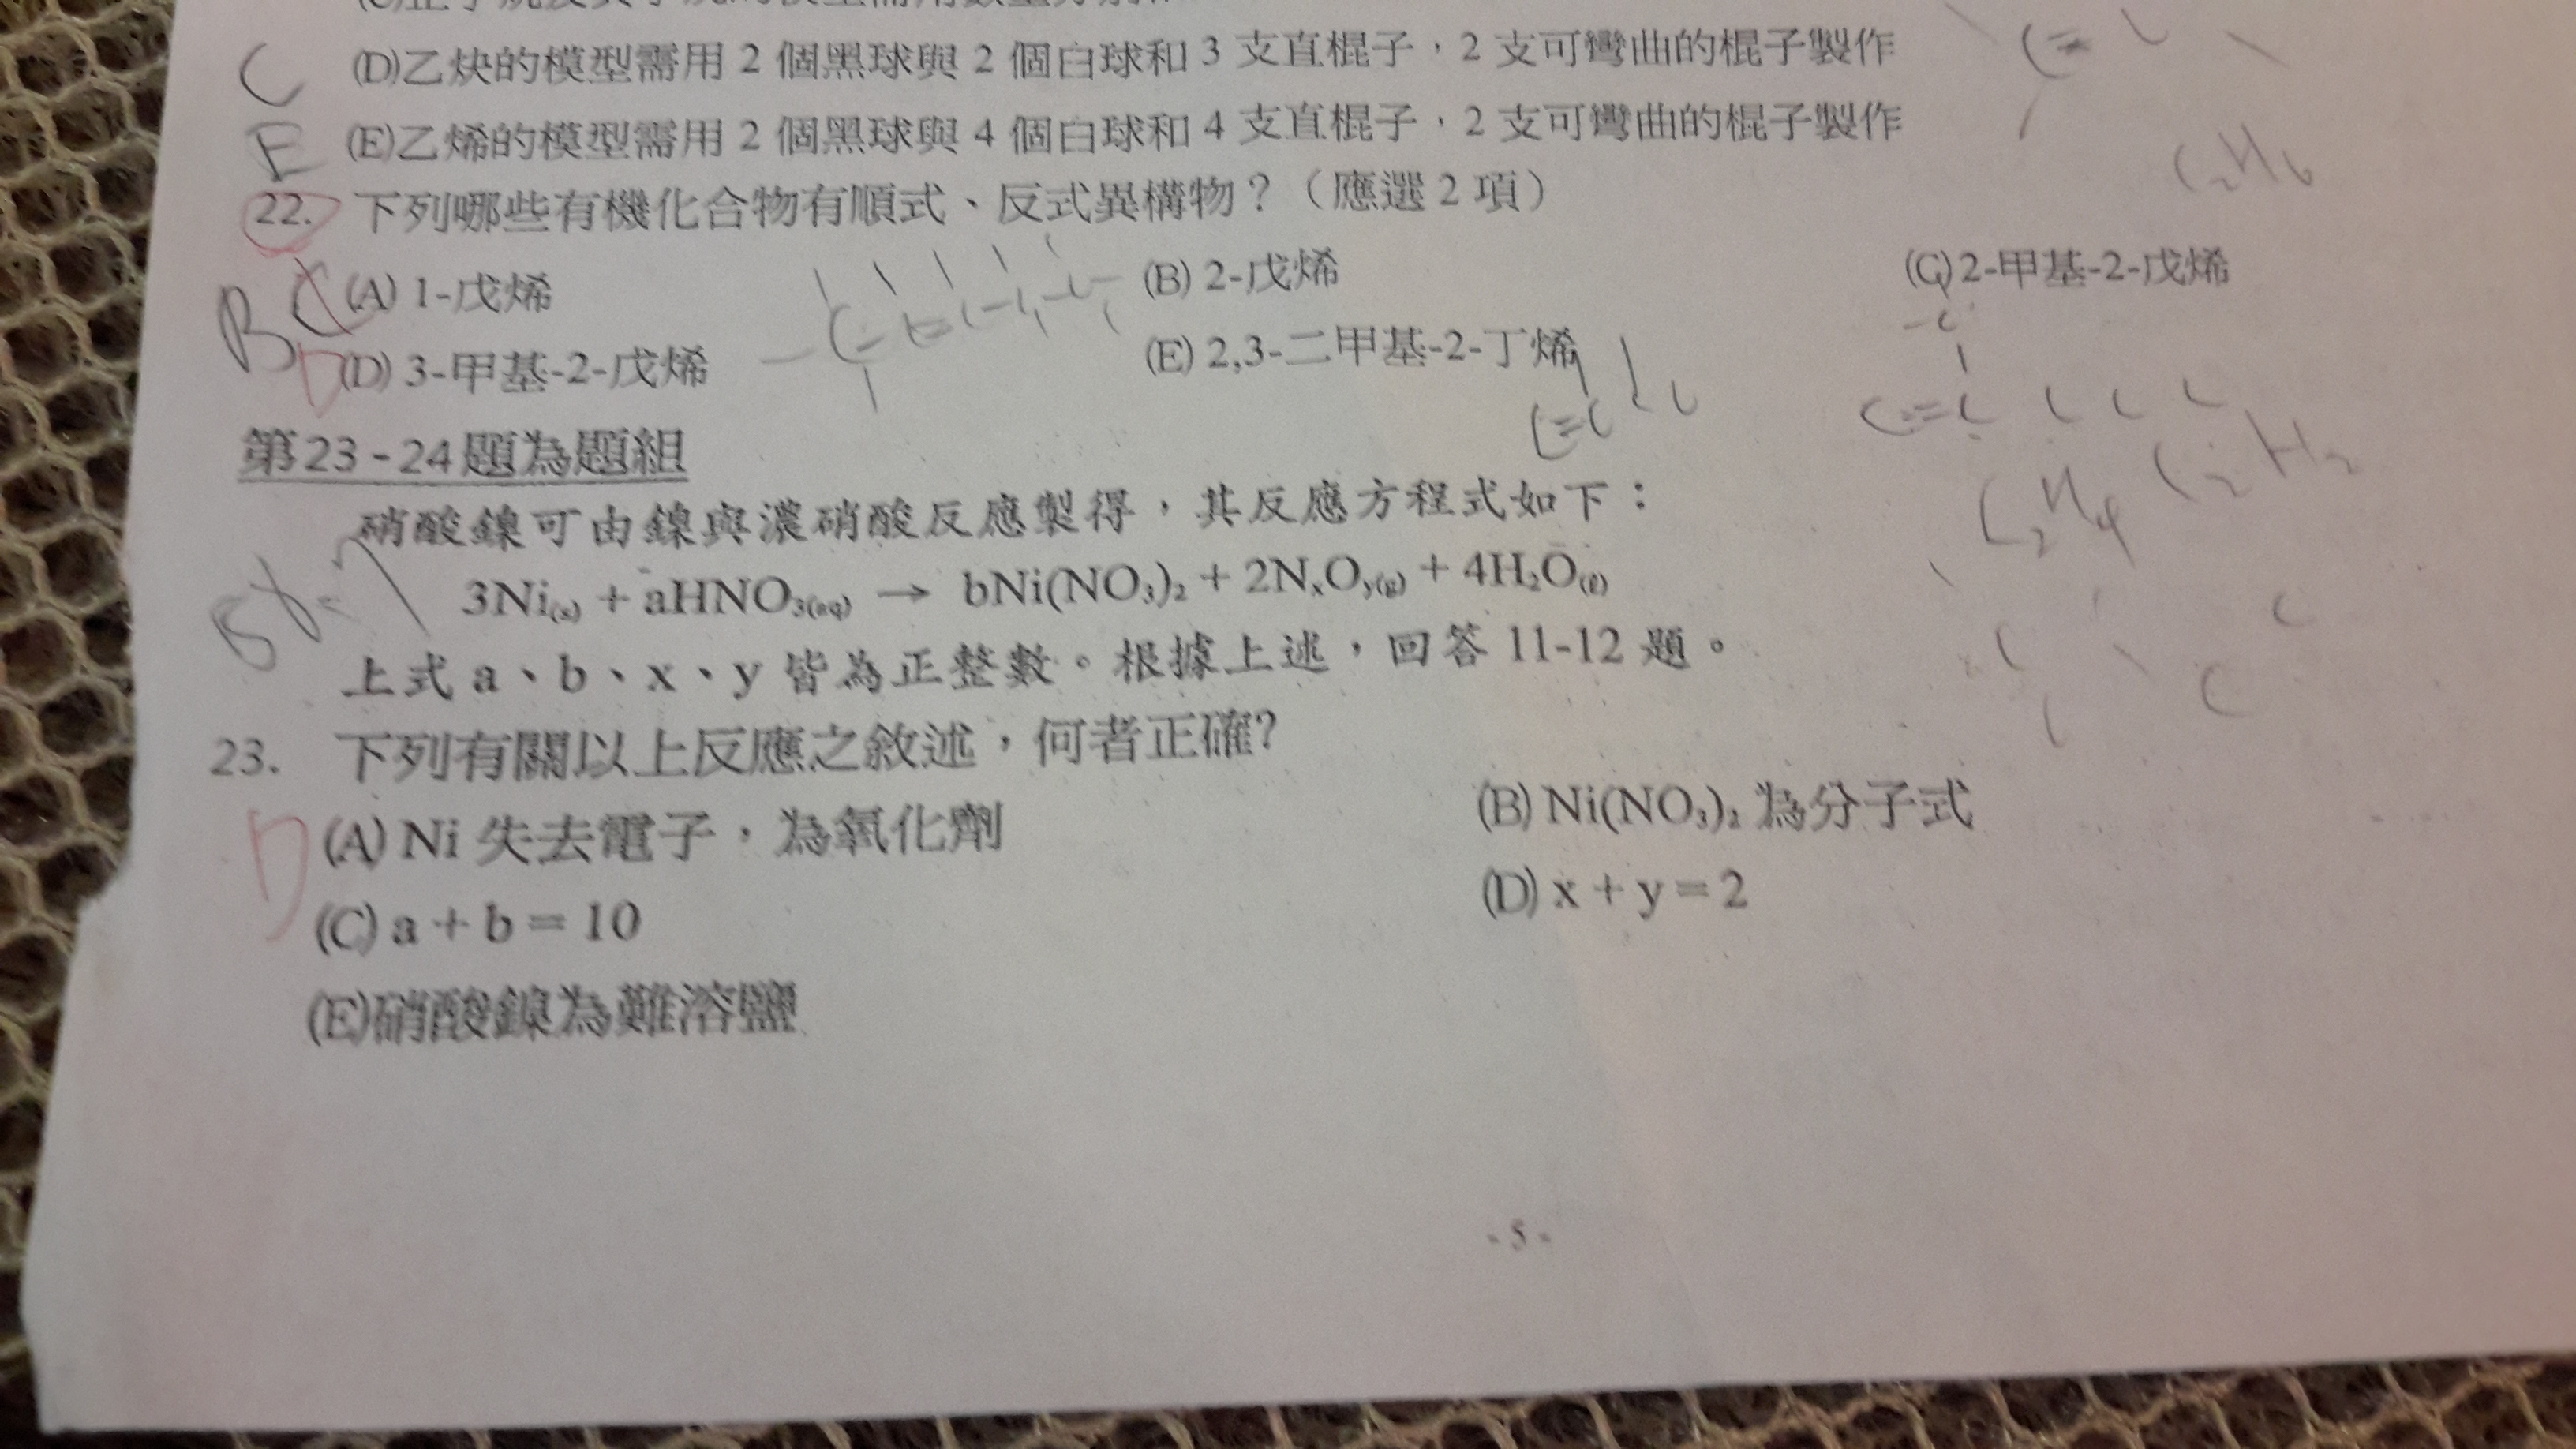 (D)乙炔的模型需用 2 個黑球與 2 個白球和 3 支直棍子，2 支可彎曲的棍子製作
C
(E)乙烯的模型需用 2 個黑球與 4 個白球和 4 支直棍子，2 支可彎曲的棍子製作
E
C2H6
22. 下列哪些有機化合物有順式、反式異構物？（應選 2 項）
(A) 1-戊烯 (B) 2-戊烯 (C) 2-甲基-2-戊烯
B C
D
(D) 3-甲基-2-戊烯 (E) 2,3-二甲基-2-丁烯
C=C
C2H4 C2H2
第23-24題為題組
硝酸鎳可由鎳與濃硝酸反應製得，其反應方程式如下：
3Ni(s) + aHNO3(aq) → bNi(NO3)2 + 2NxOy(g) + 4H2O(ℓ)
上式 a、b、x、y 皆為正整數。根據上述，回答 11-12 題。
23. 下列有關以上反應之敘述，何者正確?
D
(A) Ni 失去電子，為氧化劑 (B) Ni(NO3)2 為分子式
(C) a + b = 10 (D) x + y = 2
(E)硝酸鎳為難溶鹽
- 5 -